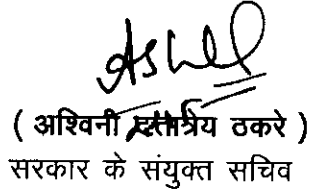 ( अश्विनी दत्तात्रेय ठकरे )
सरकार के संयुक्त सचिव